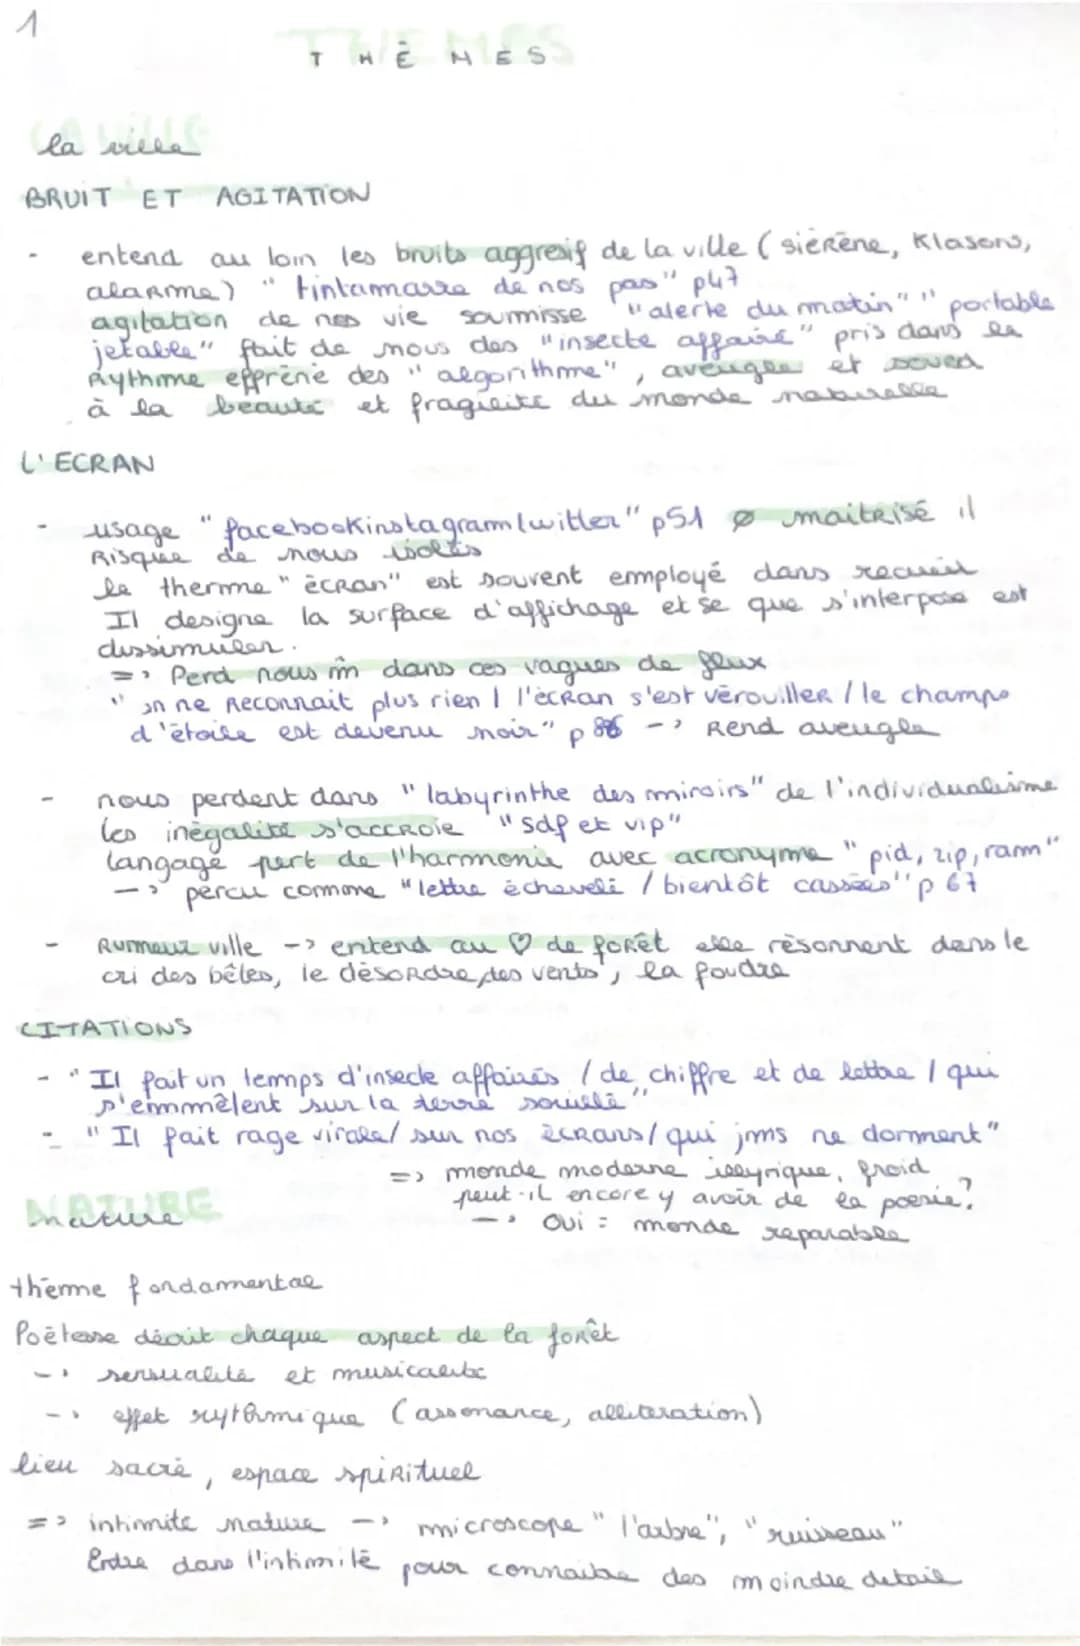 1
THÈMES
la ville
BRUIT ET AGITATION
- entend au loin les bruits aggresif de la ville (siérène, Klasons,
alarme) "tintamarre de nos pas" p47
agitation de nos vie soumisse "alerte du matin" "portable
jetable" fait de nous des "insecte affairé" pris dans le
Rythme effréné des "algorithme", aveugle et sourd
à la beauté et fragilité du monde naturelle
L'ECRAN
- usage "facebookinstagramtwitter" p51 Ø maitrisé il
Risque de nous isolés
le therme "écran" est souvent employé dans recueil
Il designe la surface d'affichage et se que s'interpose est
dissimuler.
=> Perd nous m̂ dans ces vagues de flux
"on ne Reconnait plus rien / l'écran s'est vérouiller / le champs
d'étoile est devenu noir" p86 -> Rend aveugle
- nous perdent dans "labyrinthe des miroirs" de l'individualisme
les inégalité s'accroie "sdf et vip"
langage part de l'harmonie avec acronyme "pid, zip, ram"
-> percu comme "lettre échevelé / bientôt cassées" p67
- Rumeur ville -> entend au ♡ de forêt elle résonnent dans le
cri des bêtes, le désordre des vents, la foudre
CITATIONS
- "Il fait un temps d'insecte affairés / de chiffre et de lettre / qui
s'emmêlent sur la terre souillé"
- "Il fait rage virale / sur nos écrans / qui jms ne dorment"
=> monde moderne illyrique, froid
peut-il encore y avoir de la poésie?
-> Oui = monde reparable
NATURE
nature
thème fondamental
Poétesse décrit chaque aspect de la forêt
-> sensualité et musicalité
-> effet rythmique (assonance, alliteration)
lieu sacré, espace spirituel
=> intimité nature -> microscope "l'arbre", "ruisseau"
Entre dans l'intimité pour connaitre des moindre detail